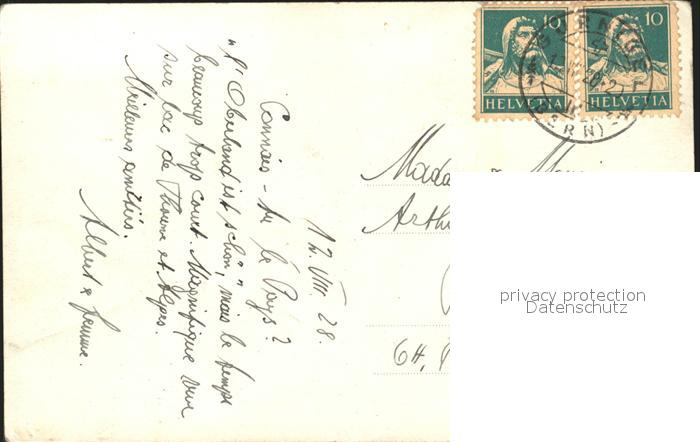 10
10
HELVETIA
HELVETIA
12. VIII. 28.
Connais-tu le Pays?
"s'Oberland ist schön", mais le temps
beaucoup trop court. Magnifique vue
sur lac de Thoune et Alpes.
Meilleures amitiés.
Albert & femme.
Arth
64,
privacy protection
Datenschutz